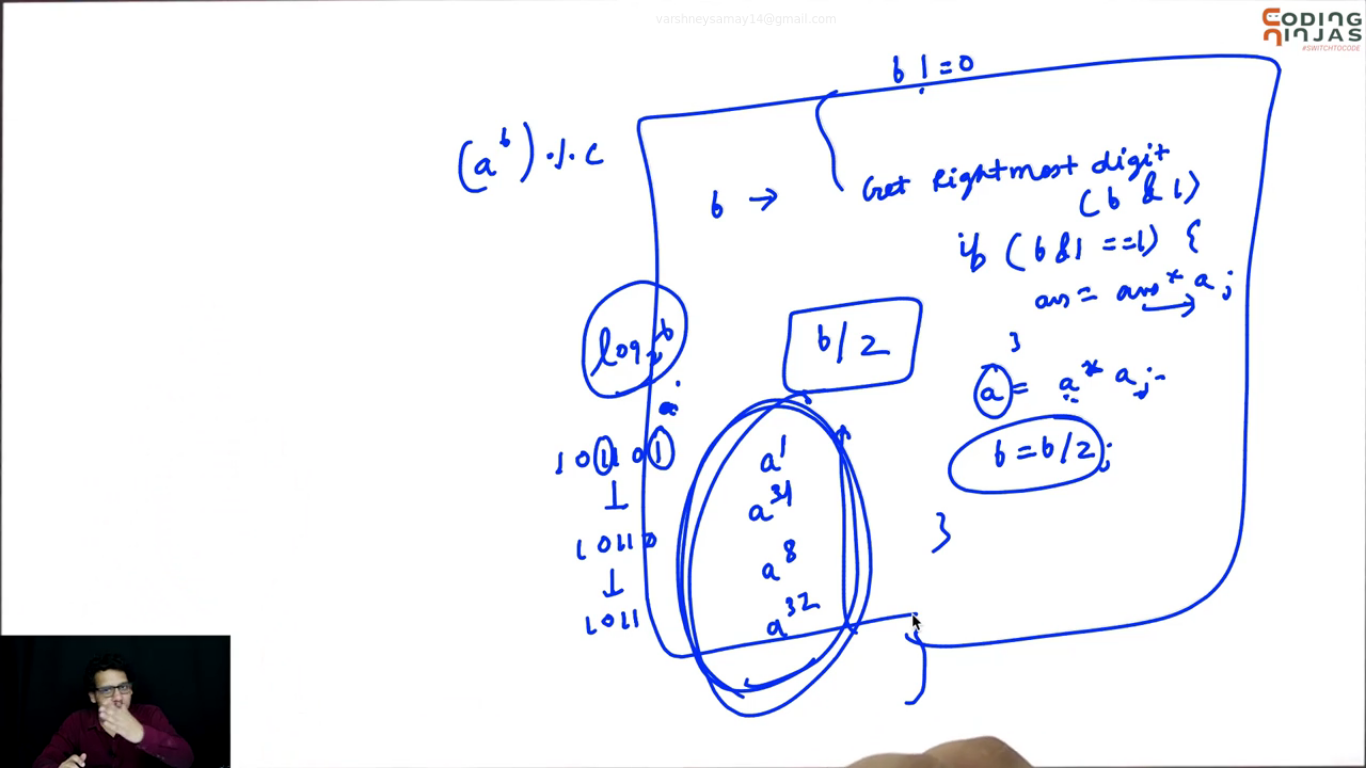 varshneysamay14@gmail.com
CODING
NINJAS
#SWITCHTOCODE
b != 0
(a^b) % c
b → Get Rightmost digit
(b & 1)
if (b & 1 == 1) {
ans = ans * a;
}
log₂b
b/2
a = a * a;
a
b = b/2;
101101
a^1
a^4
10110
a^8
1011
a^32
}